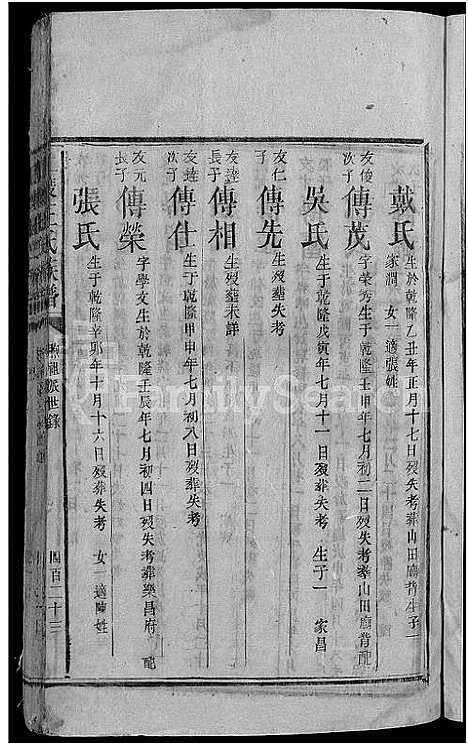 戴氏 生於乾隆乙丑年正月十七日歿失考葬山田廟背生子一
家潤 女一適張姓
友俊次子 傳茂 字榮秀生于乾隆壬申年七月初二日歿失考葬山田廟背配
吳氏 生于乾隆戊寅年七月十一日歿葬失考 生子一 家昌
友仁子 傳先 生歿葬失考
友達長子 傳相 生歿葬未詳
友達次子 傳仕 生于乾隆甲申年七月初八日歿葬失考
友元長子 傳榮 字學文生於乾隆壬辰年七月初四日歿失考葬樂昌府 配
張氏 生于乾隆辛卯年十月十六日歿葬失考 女一適陳姓
王氏族譜
派世錄
四百二十三
FamilySearch